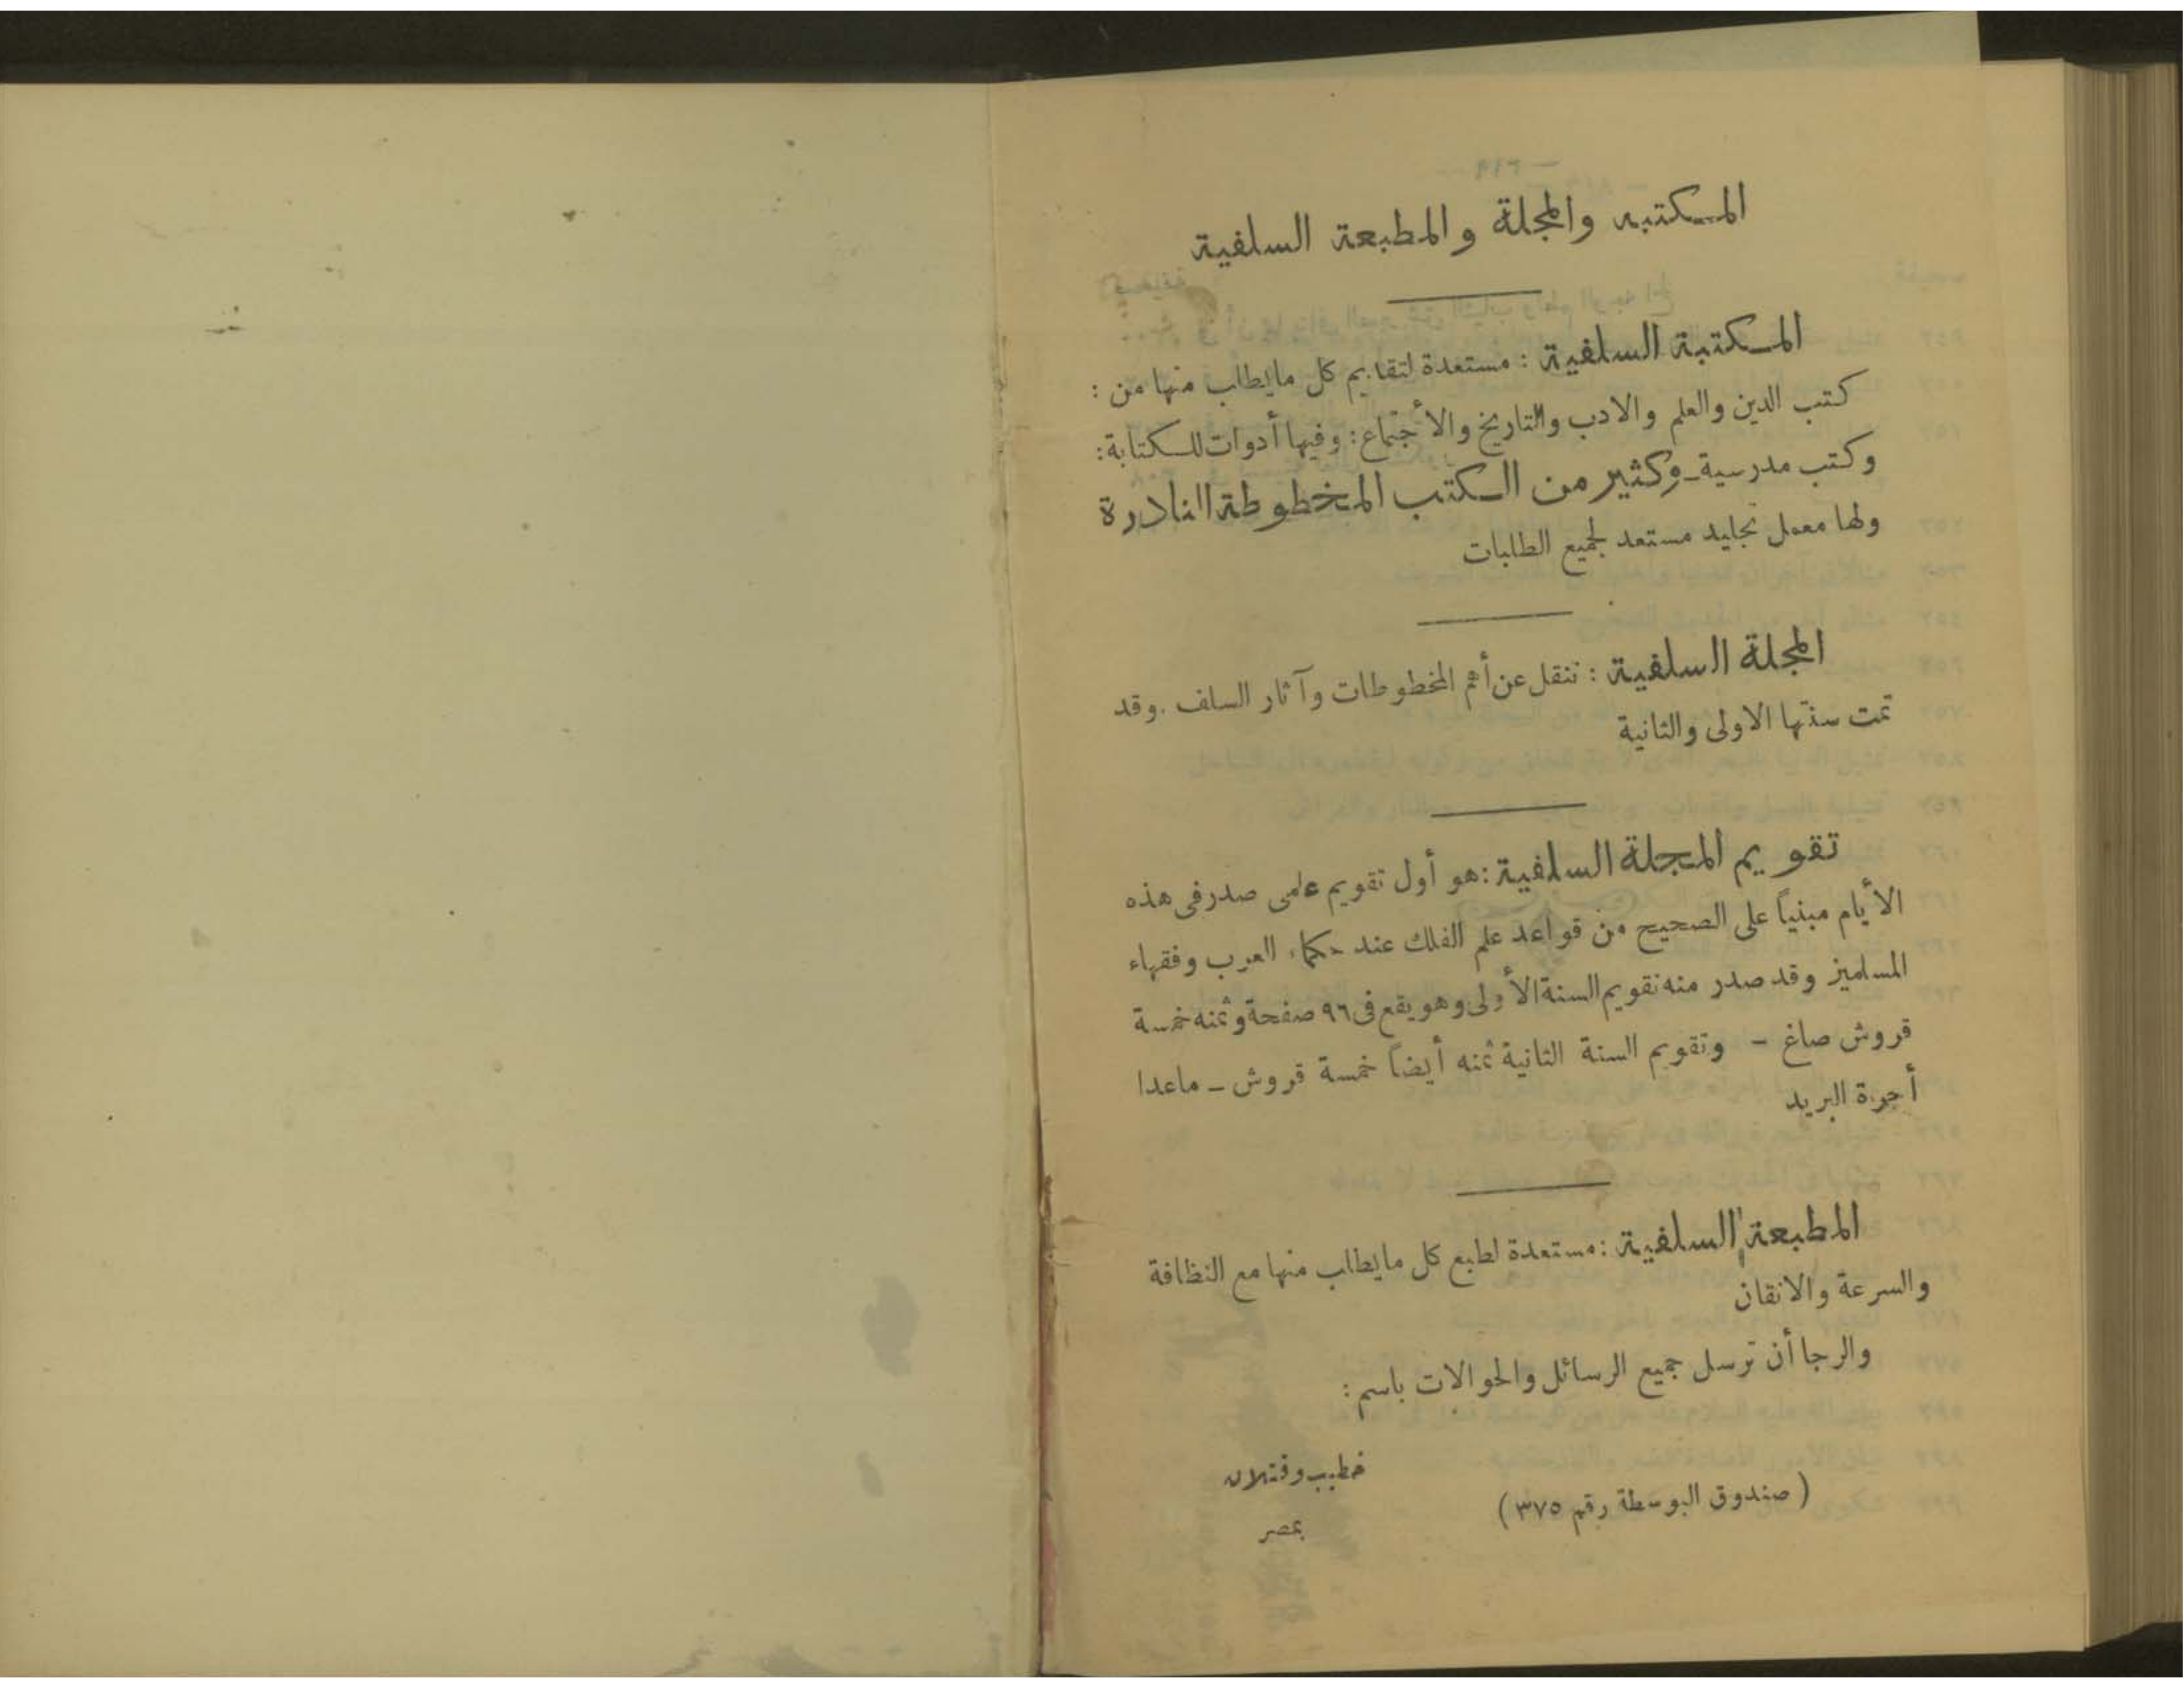 المكتبة والمجلة والمطبعة السلفية
المكتبة السلفية : مستعدة لتقديم كل مايطلب منها من :
كتب الدين والعلم والادب والتاريخ والاجتماع : وفيها أدوات للكتابة :
وكتب مدرسية ـ وكثير من الكتب المخطوطة النادرة
ولها معمل تجليد مستعد لجميع الطلبات
المجلة السلفية : تنقل عن أهم المخطوطات وآثار السلف . وقد
تمت سنتها الاولى والثانية
تقويم المجلة السلفية : هو أول تقويم علمى صدر فى هذه
الأيام مبنياً على الصحيح من قواعد علم الفلك عند حكماء العرب وفقهاء
المسلمين وقد صدر منه تقويم السنة الأولى وهو يقع فى ٩٦ صفحة وثمنه خمسة
قروش صاغ – وتقويم السنة الثانية ثمنه أيضاً خمسة قروش – ماعدا
أجرة البريد
المطبعة السلفية : مستعدة لطبع كل مايطلب منها مع النظافة
والسرعة والاتقان
والرجا أن ترسل جميع الرسائل والحوالات باسم :
خطيب وقتلان
(صندوق البوسطة رقم ٣٧٥)
بمصر